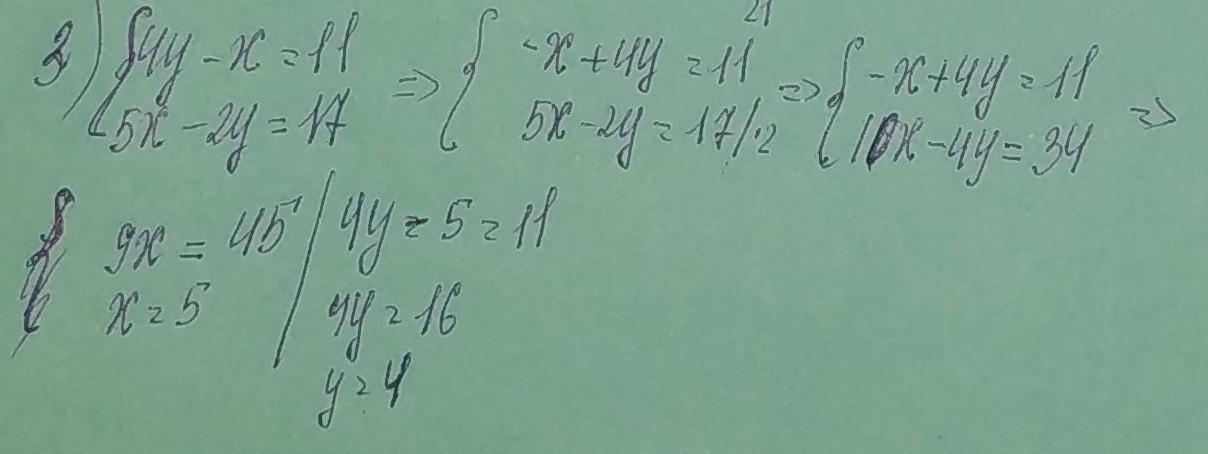 3) {4y - x = 11 => { -x + 4y = 11 => { -x + 4y = 11 =>
5x - 2y = 17 5x - 2y = 17 / ·2 10x - 4y = 34
21
9x = 45 / 4y - 5 = 11
x = 5 4y = 16
y = 4